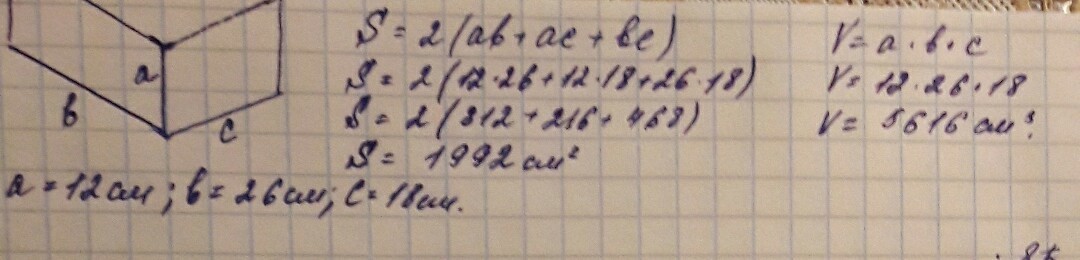 a
b
c
S = 2(ab + ac + bc)
S = 2(12·26 + 12·18 + 26·18)
S = 2(312 + 216 + 468)
S = 1992 см²
V = a · b · c
V = 12 · 26 · 18
V = 5616 см³.
a = 12 см; b = 26 см; c = 18 см.